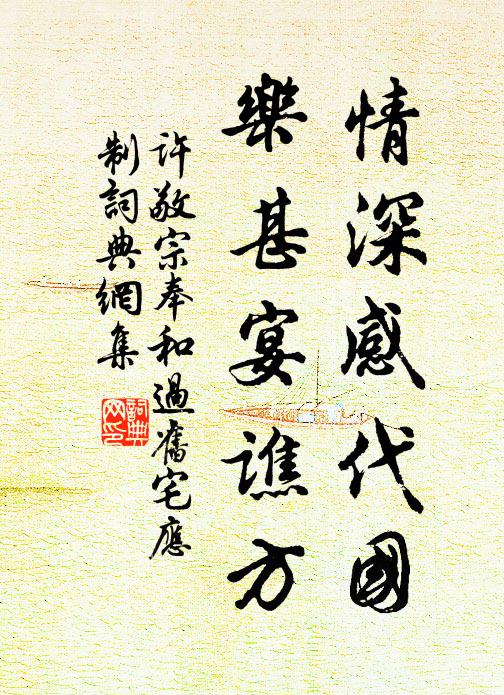 情深感代國
樂甚宴譙方
許敬宗奉和過舊宅應
制詞典網集
詞典
网印